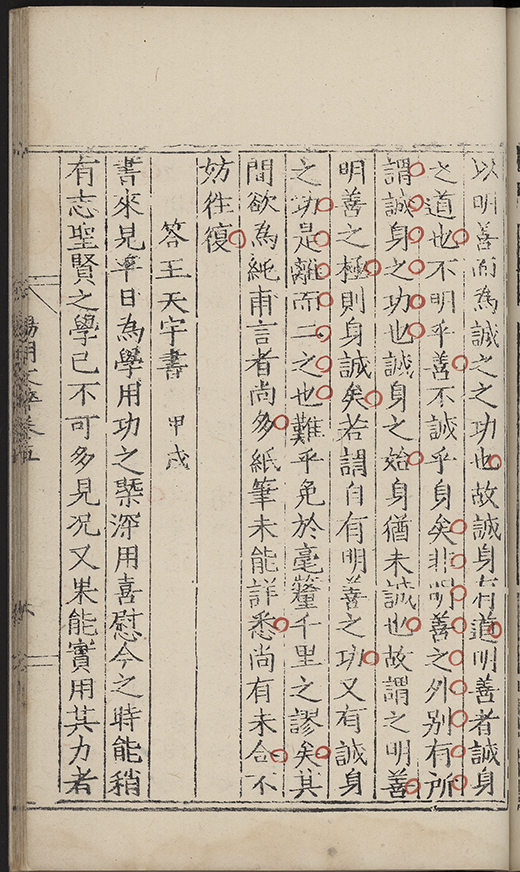 以明善而為誠之之功也故誠身有道明善者誠身
之道也不明乎善不誠乎身矣非明善之外别有所
謂誠身之功也誠身之始身猶未誠也故謂之明善
明善之極則身誠矣若謂自有明善之功又有誠身
之功是離而二之也難乎免於毫釐千里之謬矣其
間欲為純甫言者尚多紙筆未能詳悉尚有未合不
妨徃復
答王天宇書 甲戌
書來見平日為學用功之槩深用喜慰今之時能稍
有志聖賢之學已不可多見况又果能實用其力者
陽明文粹卷五